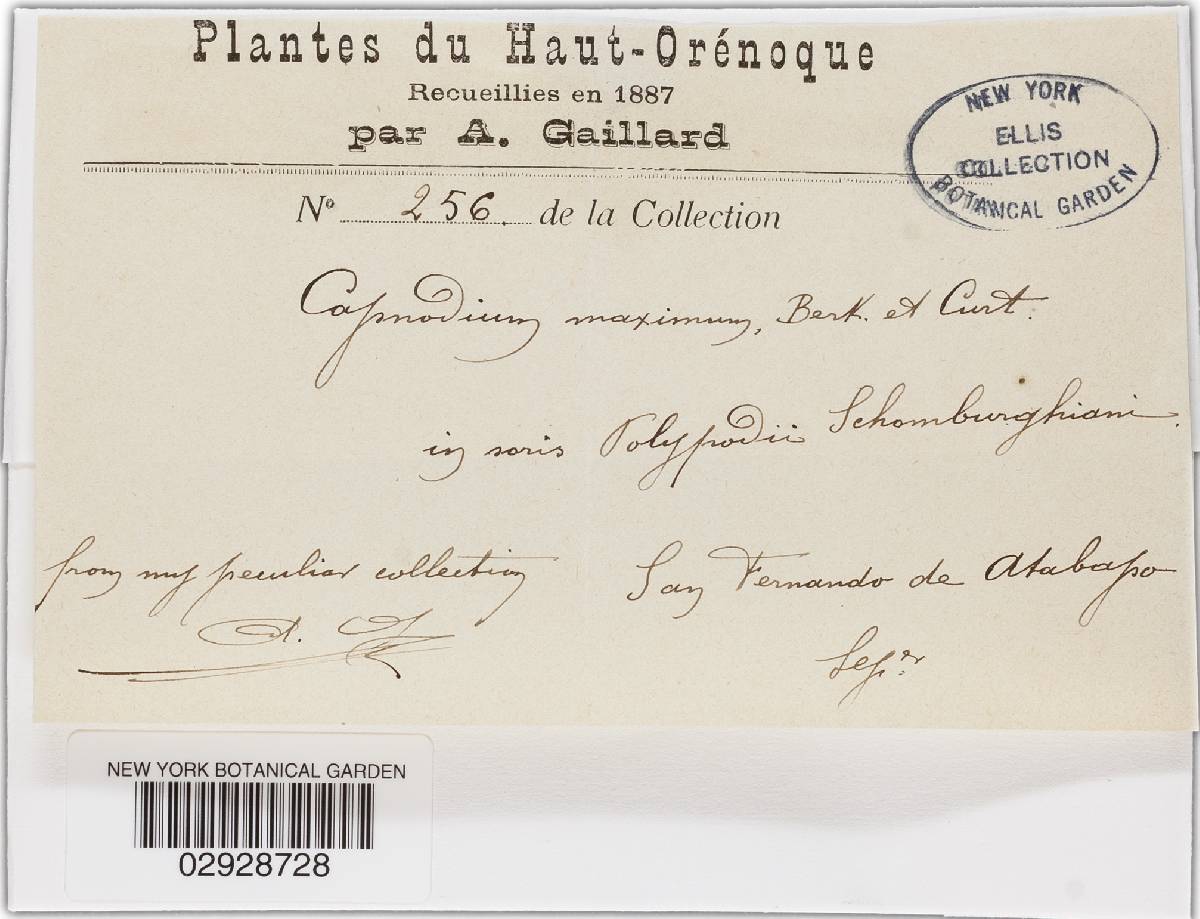 Plantes du Haut-Orénoque
Recueillies en 1887
par A. Gaillard
NEW YORK
ELLIS
COLLECTION
BOTANICAL GARDEN
Nº 256. de la Collection
Capnodium maximum, Berk. et Curt.
in soris Polypodii Schomburghiani.
from my peculiar collection
San Fernando de Atabapo
A. G
Sep.er
NEW YORK BOTANICAL GARDEN
02928728